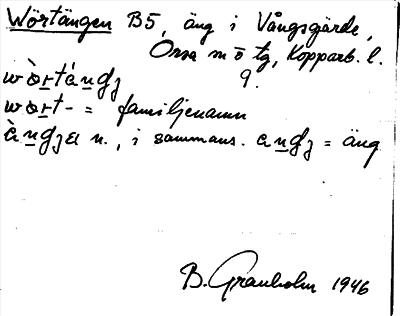 Wörtängen B5, äng i Vångsgärde,
Orsa sn o tg, Kopparb. l.
9.
wòrtàndʒ
wort- = familjenamn
àndʒa n., i sammans. andʒ = äng
B. Granholm 1946